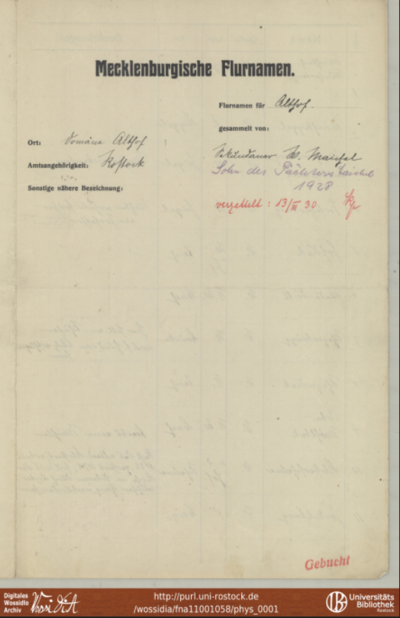 Mecklenburgische Flurnamen.
Flurnamen für Althof.
gesammelt von:
Ort: Domäne Althof
Sekundaner W.
Amtsangehörigkeit: Rostock
Sohn des Pächters
1928
Sonstige nähere Bezeichnung:
verzettelt: 13/ 30
Gebucht
Digitales
Wossidlo
Archiv
http://purl.uni-rostock.de
/wossidia/fna11001058/phys_0001
Universitäts
Bibliothek
Rostock